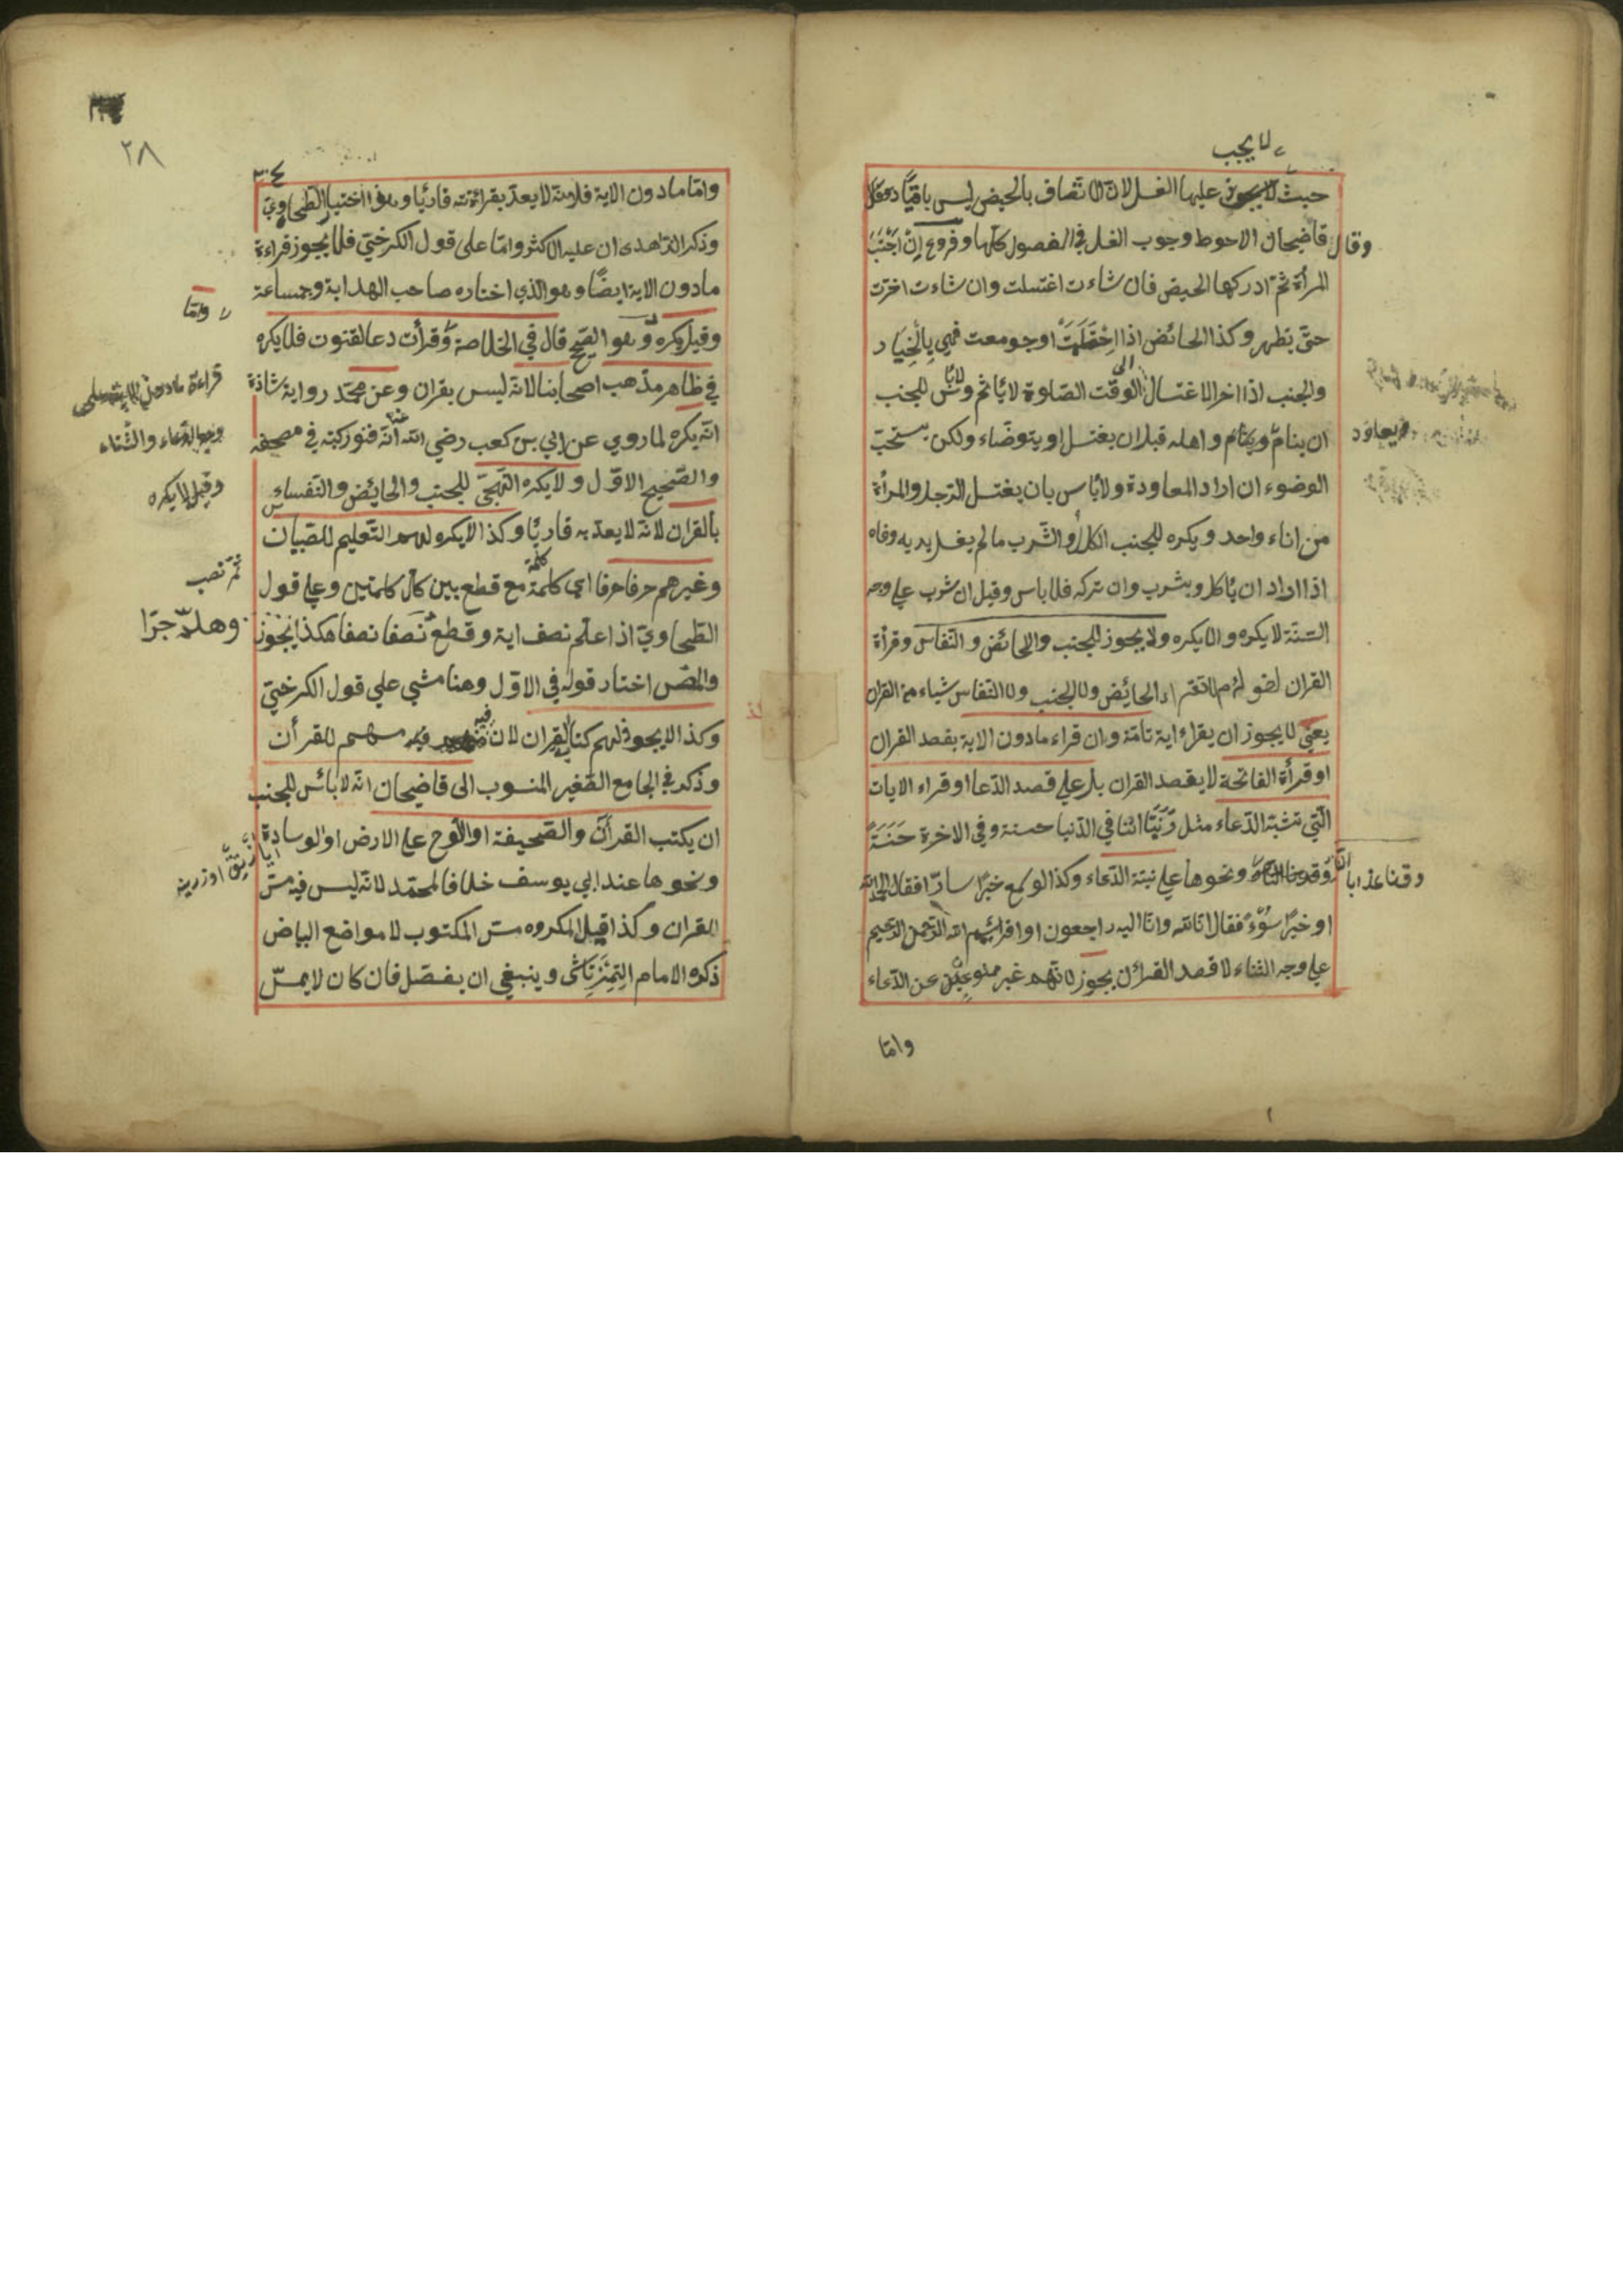 لا يجب
حيث لا عليها الغسل لان اتصاف بالحيض ليس باقيا
وقال قاضيحان الاحوط وجوب الغسل في الفصول كلها وفروع ان اجنبت
المرأة ثم ادركها الحيض فان شاءت اغتسلت وان شاءت اخرت
حتى تطهر وكذا الحائض اذا احتلمت اوجومعت فهي بالخيار
والجنب اذا اخر الاغتسال الى وقت الصلوة لا ياثم ولا بأس للجنب
ان ينام ويعاود اهله قبل ان يغتسل او يتوضاء ولكن يستحب
الوضوء ان اراد المعاودة ولا باس بان يغتسل الرجل والمرأة
من اناء واحد ويكره للجنب الاكل او الشرب مالم يغسل يديه وفاه
اذا اراد ان ياكل ويشرب وان تركه فلا باس وقيل ان شرب على وجه
السنة لا يكره والا يكره ولا يجوز للجنب والحائض والنفاس وقرأة
القران لقوله م لا تقراء الحائض ولا الجنب ولا النفاس شياء من القران
يعني لا يجوز ان يقراء اية تامة وان قراء مادون الاية بقصد القران
او قرأة الفاتحة لا بقصد القران بل على قصد الدعا او قراء الايات
التي تشبة الدعاء مثل ربنا اتنا في الدنيا حسنة وفي الاخرة حسنة
وقنا عذاب النار ونحوها على نية الدعاء وكذا لو سمع خبرا سارا فقال الحمد لله
او خبرا سوء فقال انا لله وانا اليه راجعون او بسم الله الرحمن الرحيم
على وجه الثناء لا قصد القرأن يجوز لانهم غير ممنوعين عن الدعاء
واما
٢٨
واما مادون الاية فلانه لا يعد بقرائته قارئا وهو اختيار الطحاوي
وذكر الزاهدى ان عليه الاكثر واما على قول الكرخي فلا يجوز قراءة
مادون الاية ايضا وهو الذي اختاره صاحب الهداية وجماعة
واما
وقيل يكره وهو الصحيح قال في الخلاصة وقرأت دعا القنوت فلا يكره
في ظاهر مذهب اصحابنا لانه ليس بقران وعن محمد رواية شاذة
قراءة مادون
انه يكره لما روي عن ابي بن كعب رضي الله عنه انه قنور كتبه في مصحفه
وجه الدعاء والثناء
والصحيح الاول ولا يكره التهجي للجنب والحائض والنفساء
وقيل لا يكره
بالقران لانه لا يعد به قارئا وكذا لا يكره لهم التعليم للصبيان
ثم نصب
وغيرهم حرفا حرفا اي كلمة كلمة مع قطع بين كل كلمتين وعلى قول
الطحاوي اذا علم نصف اية وقطع ثم نصفا نصفا هكذا يجوز
وهلم جرا
والمص اختار قوله في الاول وهنا مشي على قول الكرخي
وكذا لا يجوز لهم كتابة القران لان فيه مسهم للقرأن
وذكر في الجامع الصغير المنسوب الى قاضيحان انه لا بائس للجنب
ان يكتب القرأن والصحيفة او اللوح على الارض او الوسادة
ونحوها عند ابي يوسف خلافا لمحمد لانه ليس فيه مس
القران وكذا قيل المكروه مس المكتوب لا مواضع البياض
ذكره الامام التمرتاشى وينبغي ان يفصل فان كان لا يمس